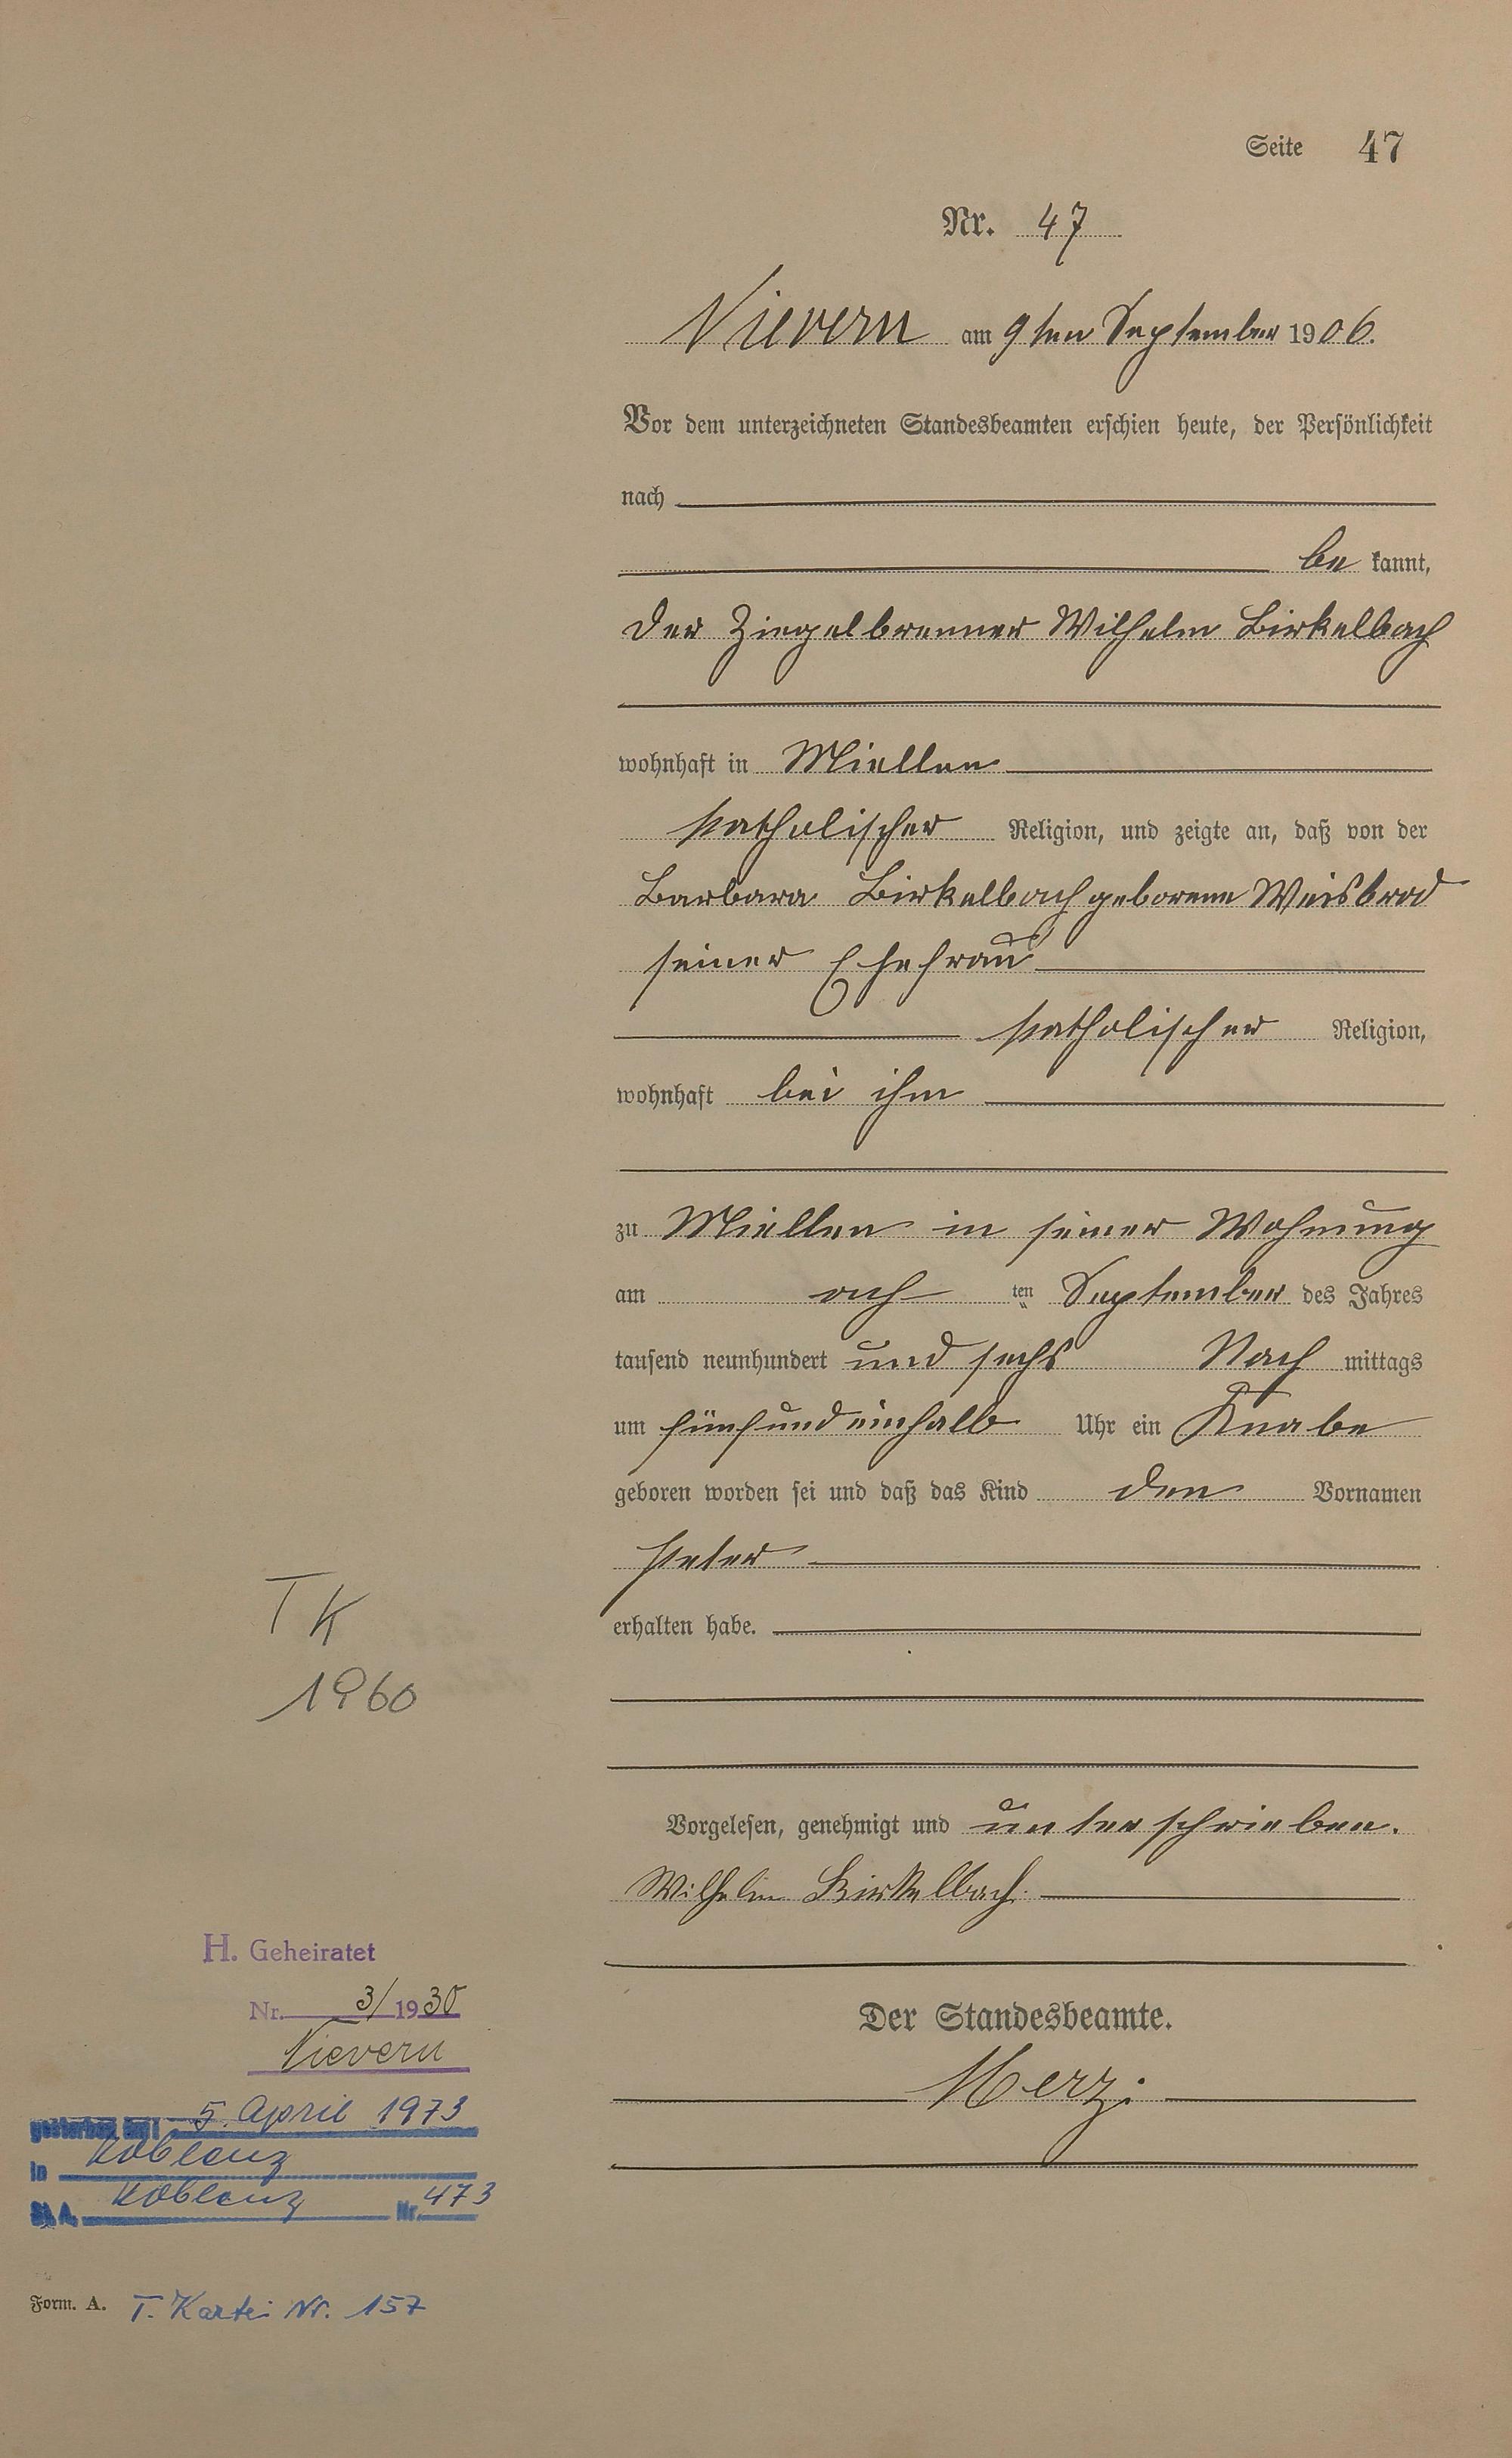 Seite 47
Nr. 47
Nievern am 9ten September 1906.
Vor dem unterzeichneten Standesbeamten erschien heute, der Persönlichkeit
nach
be kannt,
der Ziegelbrenner Wilhelm Birkelbach
wohnhaft in Miellen
katholischer Religion, und zeigte an, daß von der
Barbara Birkelbach geborene Weisbrod
seiner Ehefrau
katholischer Religion,
wohnhaft bei ihm
zu Miellen in seiner Wohnung
am ach ten September des Jahres
tausend neunhundert und sechs Nach mittags
um fünfundeinhalb Uhr ein Knabe
geboren worden sei und daß das Kind den Vornamen
Peter
erhalten habe.
Vorgelesen, genehmigt und unterschrieben.
Wilhelm Birkelbach.
Der Standesbeamte.
Merz.
TK
1960
H. Geheiratet
Nr. 3/1930
Nievern
gestorben am 5. April 1973
in Koblenz
St.A. Koblenz Nr. 473
Form. A. T. Kartei Nr. 157